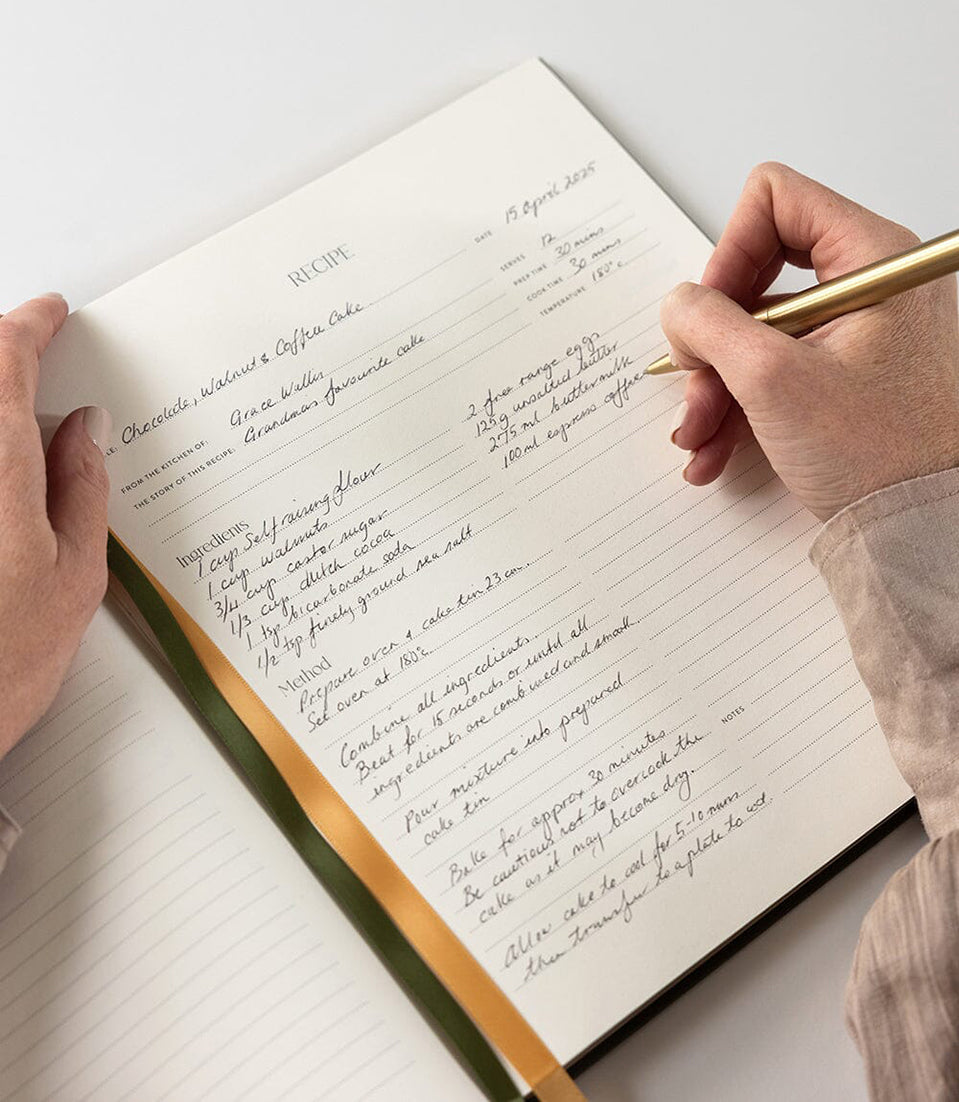 RECIPE
DATE 15 April 2025
LE: Chocolate, Walnut & Coffee Cake
SERVES 12
PREP TIME 30 mins
COOK TIME 30 mins
TEMPERATURE 180°c
FROM THE KITCHEN OF: Grace Wallis
THE STORY OF THIS RECIPE: Grandma's favourite cake
Ingredients
1 cup Self raising flour
1 cup walnuts
3/4 cup castor sugar
1/3 cup dutch cocoa
1 tsp bicarbonate soda
1/2 tsp finely ground sea salt
2 free range eggs
125g unsalted butter
275 ml buttermilk
100ml espresso coffee
Method
Prepare oven & cake tin 23 cm.
Set oven at 180°c.
Combine all ingredients.
Beat for 15 seconds or until all
ingredients are combined and smooth.
Pour mixture into prepared
cake tin
Bake for approx 30 minutes
Be cautious not to overcook the
cake as it may become dry.
Allow cake to cool for 5-10 mins
then transfer to a plate to
NOTES